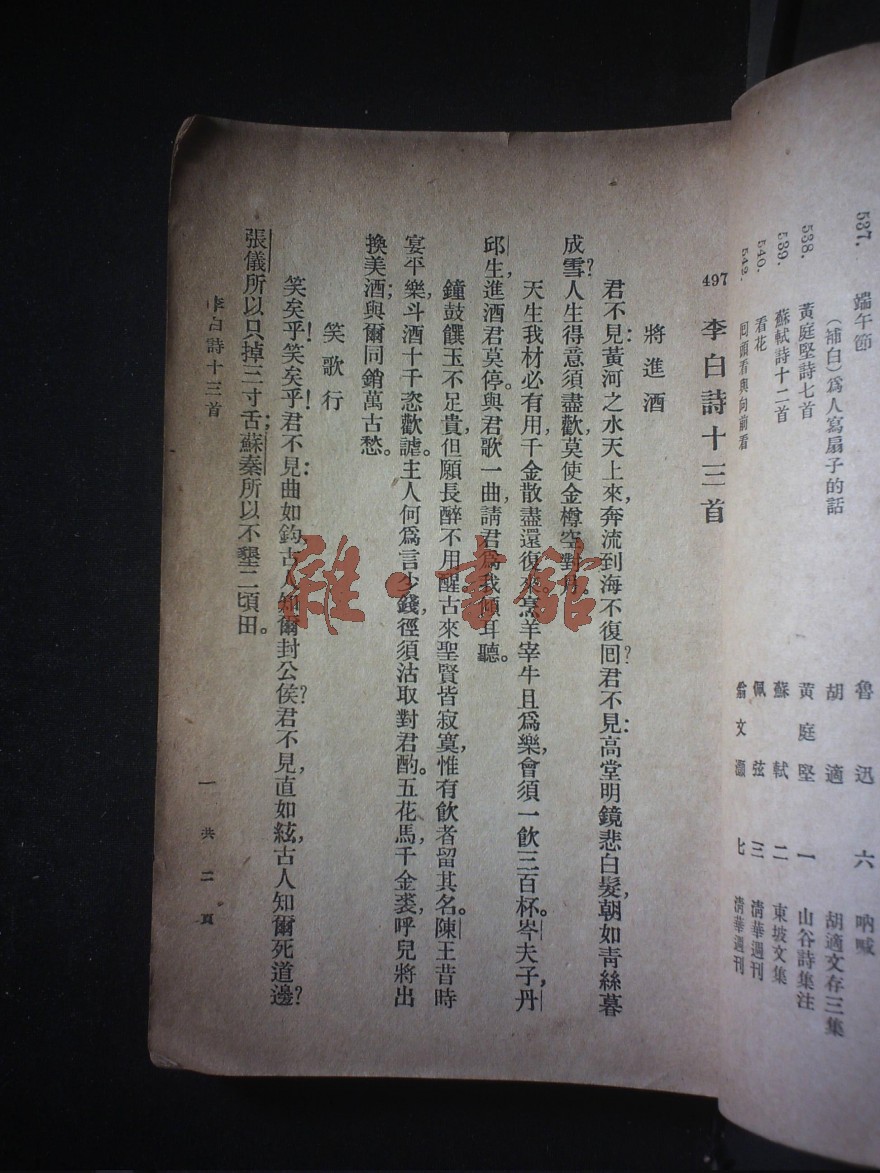 537. 端午節 魯迅 六 吶喊
(補白)爲人寫扇子的話 胡適 胡適文存三集
538. 黃庭堅詩七首 黃庭堅 一 山谷詩集注
539. 蘇軾詩十二首 蘇軾 二 東坡文集
540. 看花 佩弦 三 清華週刊
542. 回頭看與向前看 翁文灝 七 清華週刊
497 李白詩十三首
將進酒
君不見:黃河之水天上來,奔流到海不復回?君不見:高堂明鏡悲白髮,朝如青絲暮
成雪?人生得意須盡歡,莫使金樽空對月。
天生我材必有用,千金散盡還復來。烹羊宰牛且爲樂,會須一飲三百杯。岑夫子,丹
邱生,進酒君莫停。與君歌一曲,請君爲我傾耳聽。
鐘鼓饌玉不足貴,但願長醉不用醒古來聖賢皆寂寞,惟有飲者留其名。陳王昔時
宴平樂,斗酒十千恣歡謔。主人何爲言少錢,徑須沽取對君酌。五花馬,千金裘,呼兒將出
換美酒;與爾同銷萬古愁。
笑歌行
笑矣乎!笑矣乎!君不見:曲如鈎,古人知爾封公侯?君不見,直如絃,古人知爾死道邊?
張儀所以只掉三寸舌;蘇秦所以不墾二頃田。
李白詩十三首 一 共二頁
雜·書館